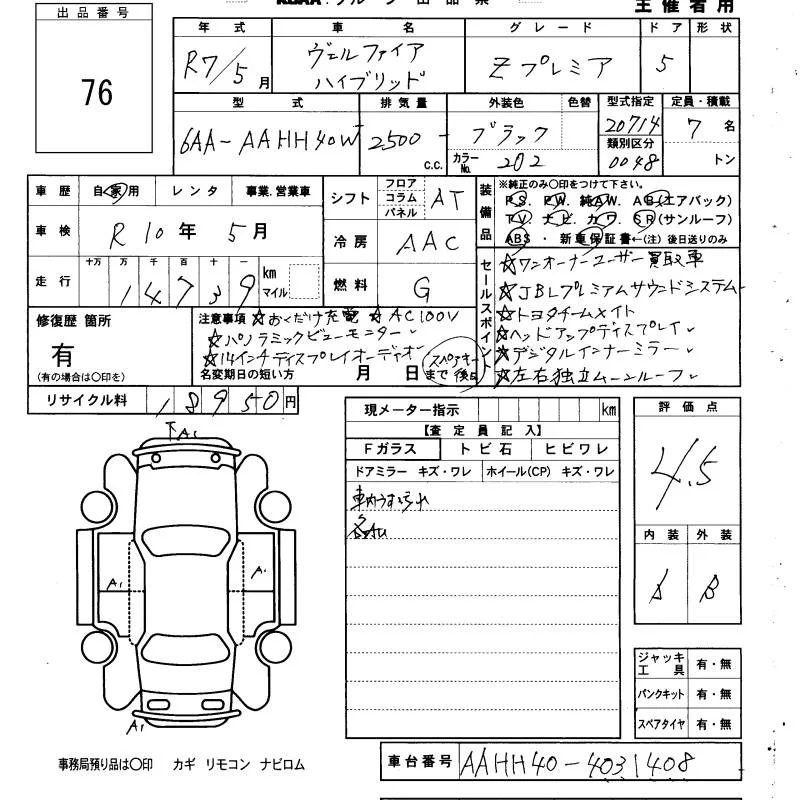 出品番号
76
主催者用
年式 車名 グレード ドア 形状
R7/5月 ヴェルファイア ハイブリッド Zプレミア 5
型式 排気量 外装色 色替 型式指定 定員・積載
6AA-AAHH40W 2500 c.c. ブラック 20714 7名
カラーNo. 202 類別区分 0048 トン
車歴 自家用 レンタ 事業.営業車
車検 R10年5月
走行 十万 万 千 百 十 一
14739 km マイル
シフト フロア コラム パネル AT
冷房 AAC
燃料 G
装備品 ※純正のみ〇印をつけて下さい。
PS. PW. 純AW. AB(エアバック)
TV. ナビ. カワ. SR(サンルーフ)
ABS ・ 新車保証書←(注) 後日送りのみ
セールスポイント
☆ワンオーナーユーザー買取車
☆JBLプレミアムサウンドシステム
☆トヨタチームメイト
☆ヘッドアップディスプレイ
☆デジタルインナーミラー
☆左右独立ムーンルーフ
修復歴 箇所
有
(有の場合は〇印を)
注意事項 ☆おくだけ充電 ☆AC100V
☆パノラミックビューモニター
☆14インチディスプレイオーディオ
名変期日の短い方 月 日まで
スペアキー後日
リサイクル料 18950円
現メーター指示 km
【査定員記入】
Fガラス トビ石 ヒビワレ
ドアミラー キズ・ワレ ホイール(CP) キズ・ワレ
車内うすごれ
評価点
4.5
内装 外装
A B
A1
A1 A1
A1
ジャッキ工具 有・無
パンクキット 有・無
スペアタイヤ 有・無
事務局預り品は〇印 カギ リモコン ナビロム
車台番号 AAHH40-4031408